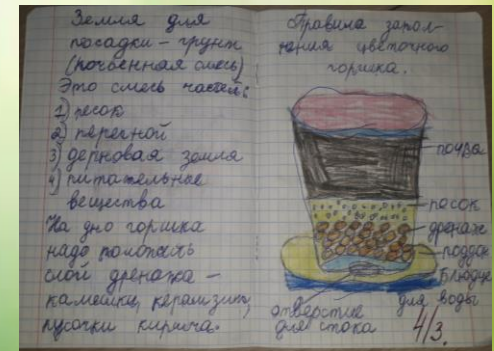 Земля для
посадки – грунт
(почвенная смесь)
Это смесь частей:
1) песок
2) перегной
3) дерновая земля
4) питательные
вещества
На дно горшка
надо положить
слой дренажа –
камешки, керамзит,
кусочки кирпича.
Правила запол-
нения цветочного
горшка.
почва
песок
дренаж
поддон
блюдце
для воды
отверстие
для стока
4/3.